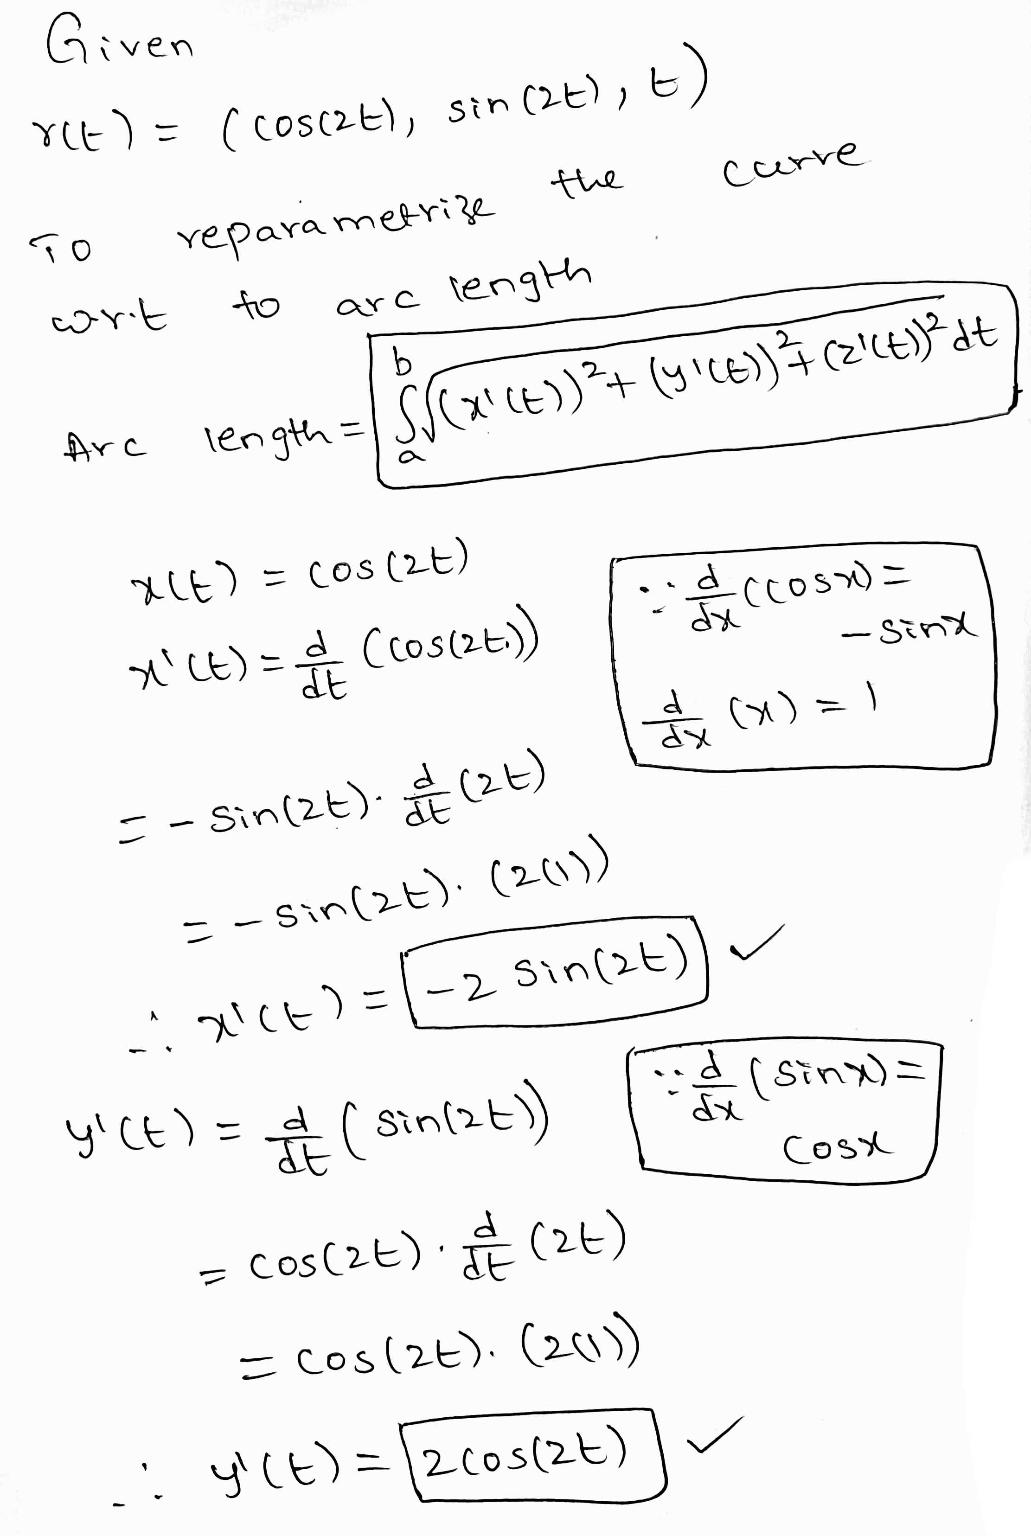 Given
r(t) = (cos(2t), sin(2t), t)
To reparametrize the curve
w.r.t to arc length
Arc length = ∫_a^b √((x'(t))² + (y'(t))² + (z'(t))²) dt
x(t) = cos(2t)
x'(t) = d/dt (cos(2t))
∵ d/dx (cosx) =
- sinx
d/dx (x) = 1
= - sin(2t). d/dt (2t)
= - sin(2t). (2(1))
∴ x'(t) = -2 sin(2t) ✓
y'(t) = d/dt (sin(2t))
∵ d/dx (sinx) =
cosx
= cos(2t). d/dt (2t)
= cos(2t). (2(1))
∴ y'(t) = 2cos(2t) ✓